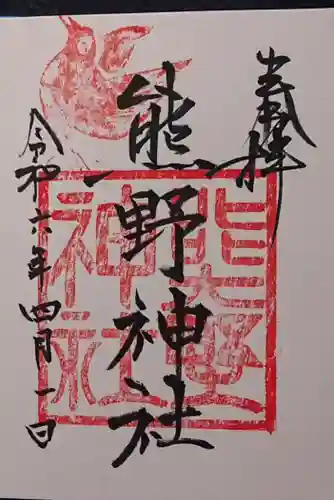 奉拝
熊野神社
熊野
神社
令和六年四月一日